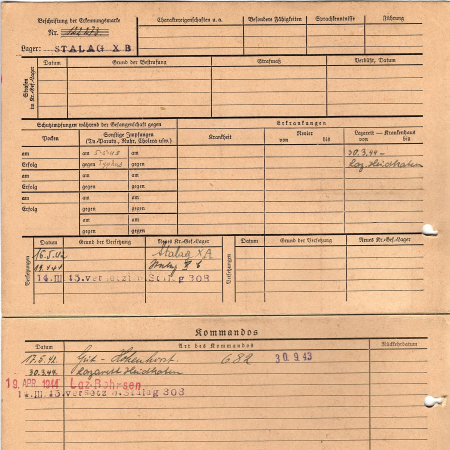 Beschriftung der Erkennungsmarke
Nr.
Lager: STALAG X B
Charaktereigenschaften u. a.
Besondere Fähigkeiten
Sprachkenntnisse
Führung
Strafen im Kr.-Gef.-Lager
Datum
Grund der Bestrafung
Strafmaß
Verbüßt, Datum
Schutzimpfungen während der Gefangenschaft gegen
Erkrankungen
Pocken
Sonstige Impfungen
(Ty.-Paratv., Ruhr, Cholera usw.)
Krankheit
Revier
von bis
Lazarett – Krankenhaus
von bis
am
am
am
30.3.44 –
Erfolg
gegen Typhus
gegen
Laz. Heidkaten
am
am
am
Erfolg
gegen
gegen
am
am
am
Erfolg
gegen
gegen
am
am
gegen
gegen
Versetzungen
Datum
Grund der Versetzung
Neues Kr.-Gef.-Lager
Versetzungen
Datum
Grund der Versetzung
Neues Kr.-Gef.-Lager
16.5.42
Stalag XA
Stalag X B
14. III. 43. versetzt n. Stalag 308
Kommandos
Datum
Art des Kommandos
Rückkehrdatum
17.5.42.
Gut - Hohenhorst.
682
30 9 43
30.3.44.
Lazarett Heidkaten
19. APR. 1944
Laz. Rohrsen
14. III. 43. versetzt n. Stalag 308